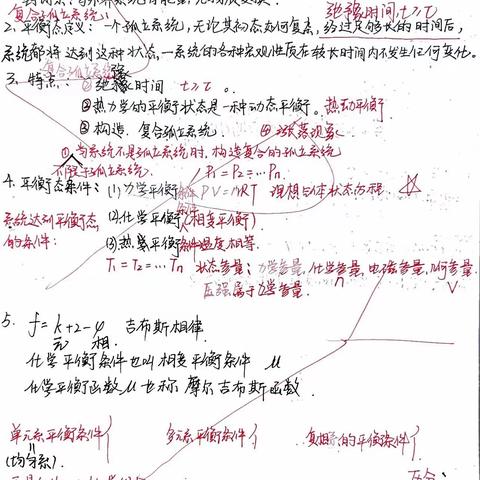 复合孤立系统
弛豫时间 t>τ
2、平衡态定义：一个孤立系统，无论其初态如何复杂，经过足够长的时间后，
系统都将达到这种状态，一系统的各种宏观性质在较长时间内不发生任何变化。
复合孤立系统
3、特点：① 弛豫时间 t>τ 。
②热力学的平衡状态是一种动态平衡。热动平衡
③构造、复合孤立系统. ④涨落现象
①当系统不是孤立系统时，构造复合的孤立系统
不限于孤立系统. P₁=P₂=…Pn.
4、平衡态条件：(1)力学平衡条件 PV=nRT 理想气体状态方程
系统达到平衡态
的条件：
(2)化学平衡条件(相变平衡).
(3)热学平衡条件温度相等.
T₁=T₂=…Tn 状态参量：力学参量,化学参量,电磁参量,几何参量.
压强属于力学参量. n V
5. f=k+2-φ 吉布斯相律
元 相.
化学平衡条件也叫相变平衡条件 μ
化学平衡函数μ也称 摩尔吉布斯函数.
单元系平衡条件{ 多元系平衡条件{ 复相系的平衡条件{
(均匀系).